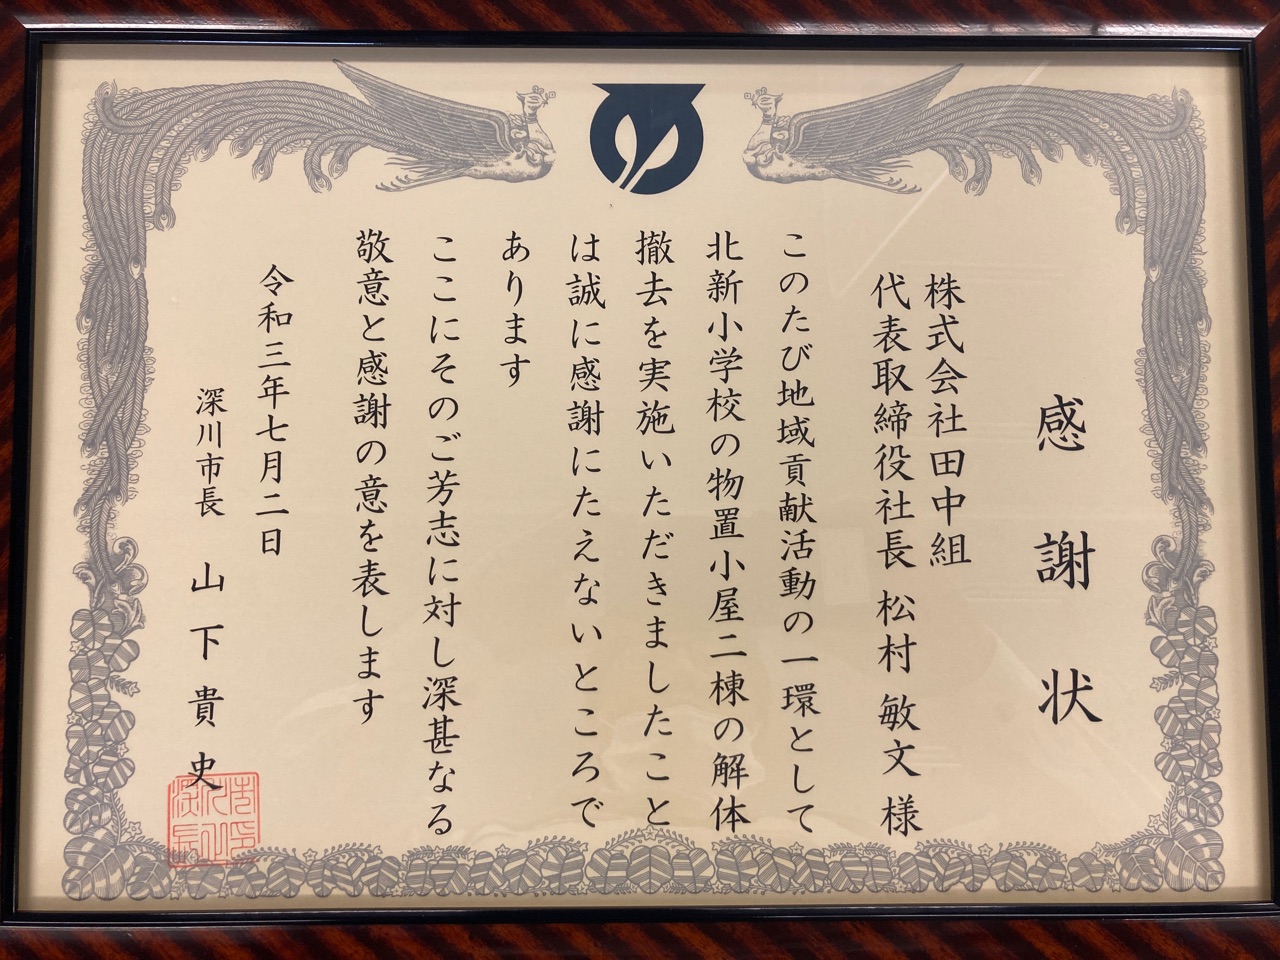 感謝状
株式会社田中組
代表取締役社長 松村 敏文 様
このたび地域貢献活動の一環として
北新小学校の物置小屋二棟の解体
撤去を実施いただきましたこと
は誠に感謝にたえないところで
あります
ここにそのご芳志に対し深甚なる
敬意と感謝の意を表します
令和三年七月二日
深川市長 山下貴史